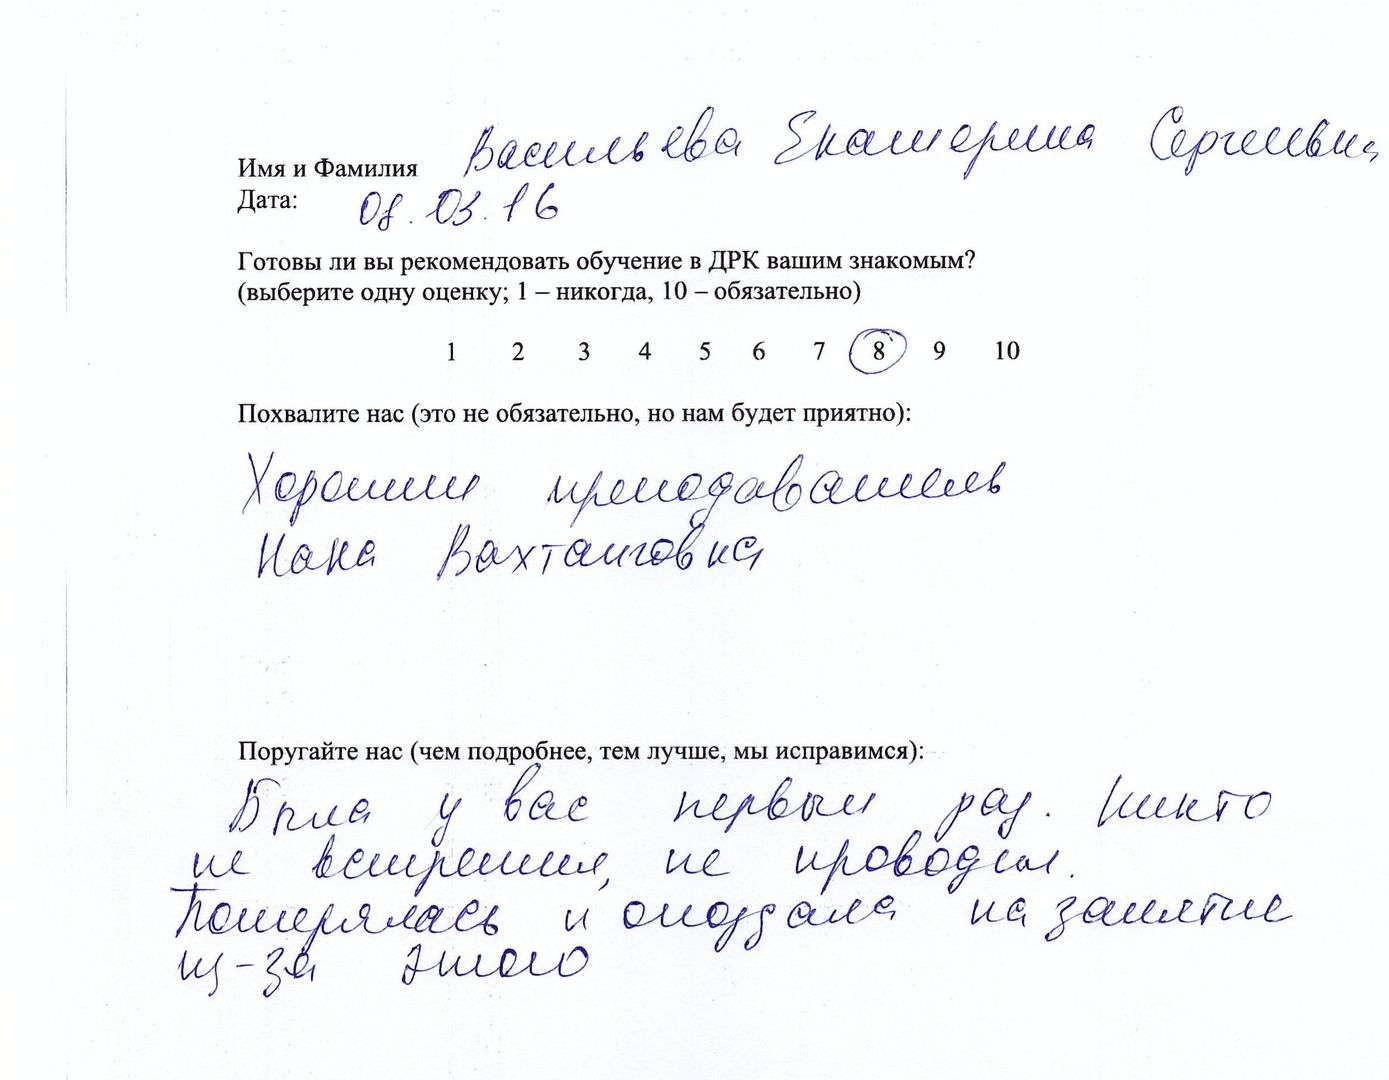 Имя и Фамилия Васильева Екатерина Сергеевна
Дата: 08.03.16
Готовы ли вы рекомендовать обучение в ДРК вашим знакомым?
(выберите одну оценку; 1 – никогда, 10 – обязательно)
1 2 3 4 5 6 7 8 9 10
Похвалите нас (это не обязательно, но нам будет приятно):
Хороший преподаватель
Нана Вахтанговна
Поругайте нас (чем подробнее, тем лучше, мы исправимся):
Была у вас первый раз. Никто
не встретил, не проводил.
Потерялась и опоздала на занятие
из-за этого